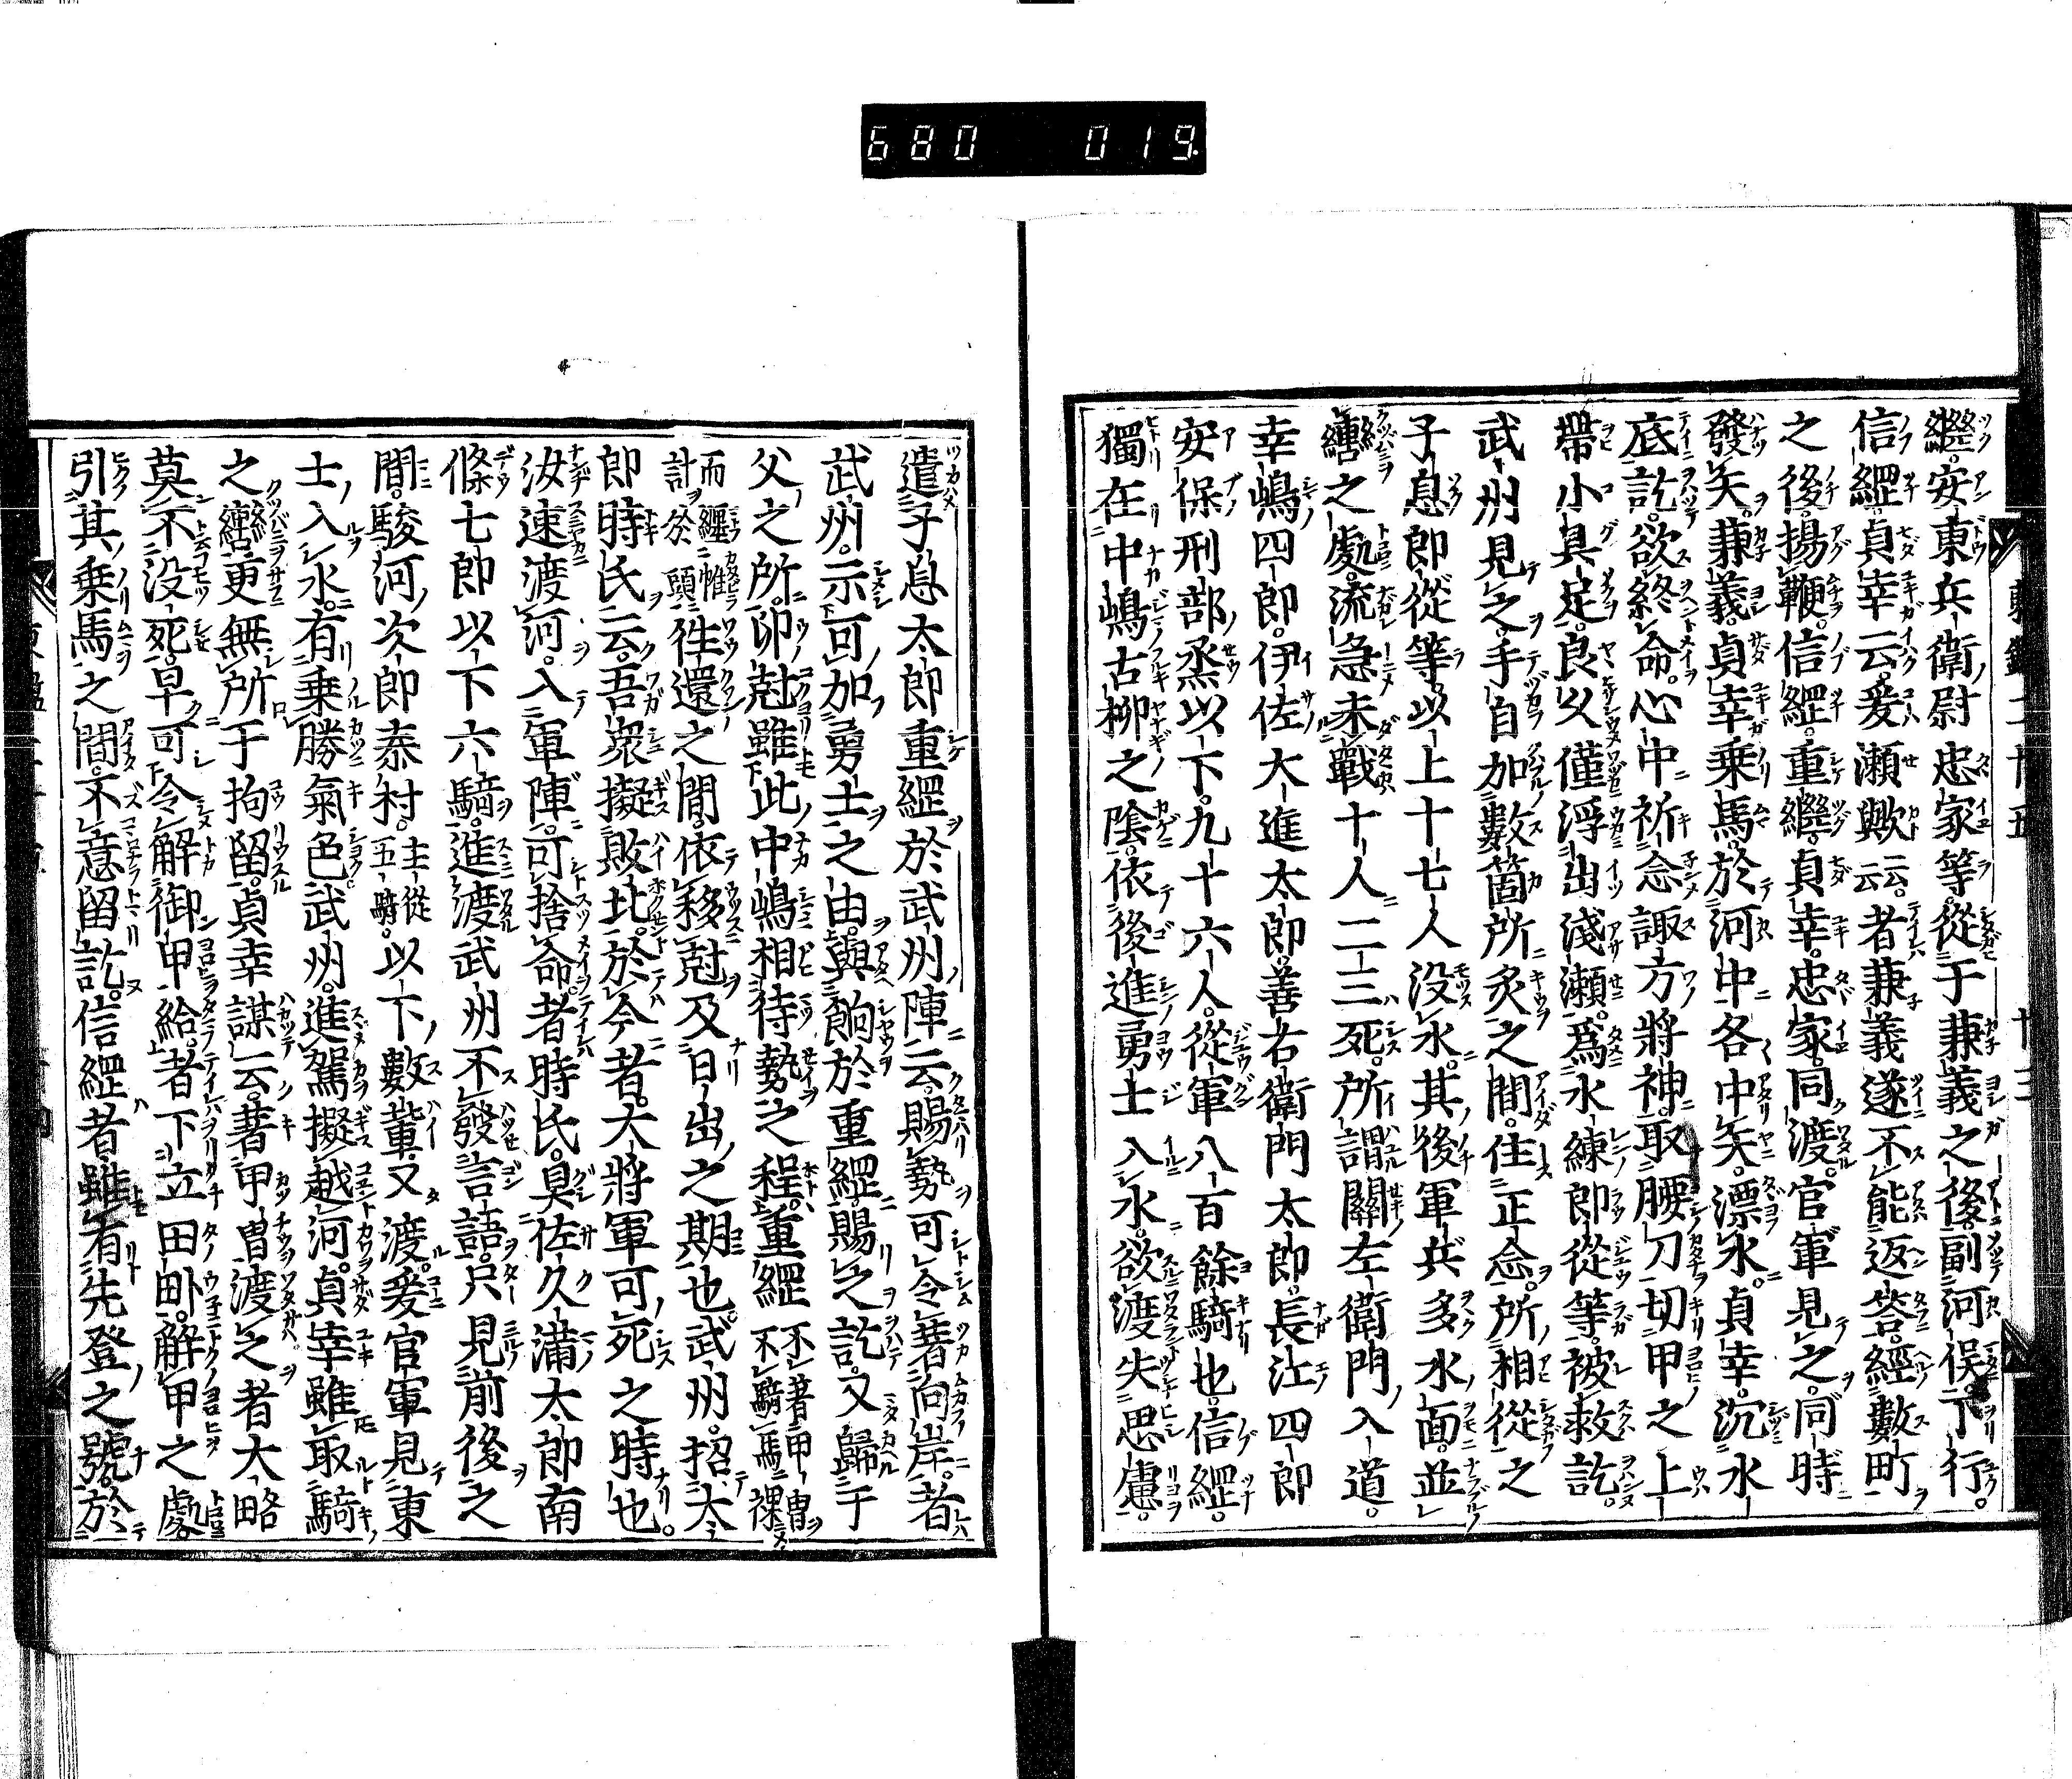 680 019
繼。安東兵衛尉忠家等。從于兼義之後。副河俣下行。
信綱。貞幸云。爰瀬歟云云。者兼義遂不能返答。經數町
之後。揚鞭。信綱。重繼。貞幸。忠家。同渡。官軍見之。同時
發矢。兼義。貞幸乗馬。於河中各中矢。漂水。貞幸沉水
底訖。欲終命。心中祈念諏方將神。取腰刀切甲之上
帶小具足。良久僅浮出淺瀬。爲水練郎從等被救訖。
武州見之。手自加數箇所炙之間。住正念。所相從之
子息郎從等。以上十七人没水。其後軍兵多水面並
轡之處。流急未戰十人二三死。所謂關左衛門入道。
幸嶋四郎。伊佐大進太郎。善右衛門太郎。長江四郎
安保刑部烝以下。九十六人。從軍八百餘騎也。信綱。
獨在中嶋古柳之陰。依後進勇士入水。欲渡失思慮。
遣子息太郎重綱於武州陣云。賜勢可令著向岸。者
武州。示可加勇士之由。與餉於重綱。賜之訖。又歸于
父之所。卯尅雖此中嶋相待勢之程。重綱不著甲冑不騎馬裸
而纒帷計於頭往還之間。依移尅及日出之期也。武州。招太
郎時氏云。吾衆擬敗北。於今者。大將軍可死之時也。
汝速渡河。入軍陣。可捨命。者時氏。具佐久滿太郎南
條七郎以下六騎。進渡武州不發言語。只見前後之
間。駿河次郎泰村。主從五騎。以下數輩又渡。爰官軍見東
士入水。有乗勝氣色。武州。進駕擬越河。貞幸雖取騎
之轡更無所于拘留。貞幸謀云。著甲冑渡之者大略
莫不没死。早可令解御甲給。者下立田畝。解甲之處。
引其乗馬之間。不意留訖。信綱者雖有先登之號。於